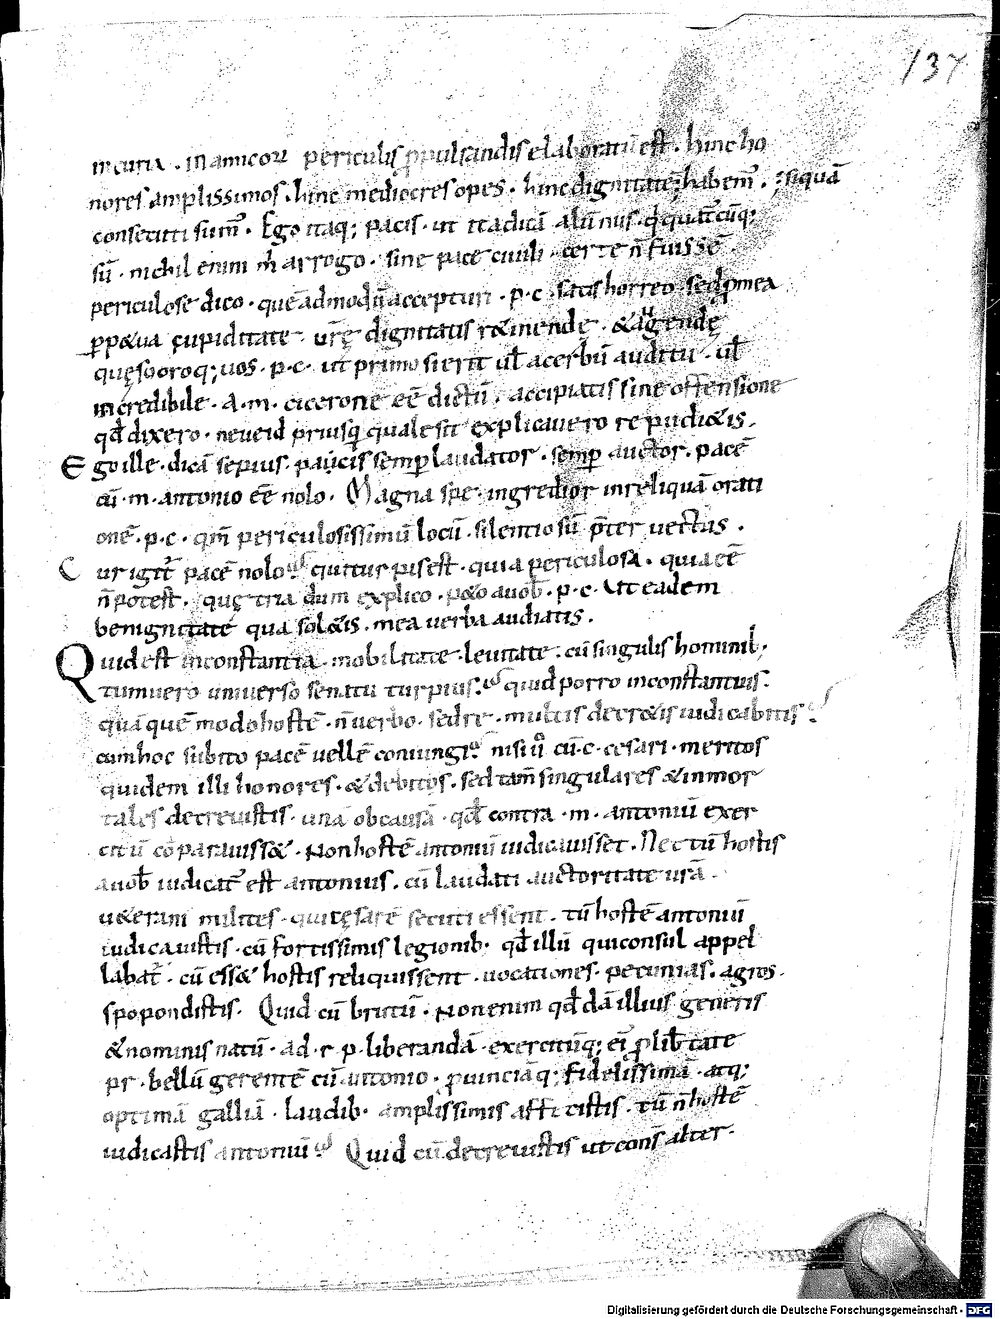 137
in curia. in amicorū periculis ꝓpulsandis elaboratū est. hinc ho
nores amplissimos. hinc mediocres opes. hinc dignitatē habem̄. siquā
consecuti sum̄. Ego itaq; pacis. ut ita dicā alūnus. qꝗ quāt cūq;
sū. nichil enim m̄ arrogo. sine pace ciuili. certe n̄ fuissē
periculose dico. quēadmodū accepturi. p.c. satis horreo. sed ꝓ mea
ꝑp&ua cupiditate urę dignitatis r&inendę. & augendę
quęso oroq; uos. p.c. ut primo si erit ul̄ acerbū auditu. ul̄
incredibile. a.m. cicerone eē dictū. accipiatis sine offensione
qđ dixero. neue id priusq̄ quale sit explicauero repudi&is.
Ego ille. dicā sepius. pacis semꝑ laudator. semꝑ auctor. pacē
cū. m. antonio eē nolo. Magna spe. ingredior in reliquā orati
onē. p.c. qm̄ periculosissimū locū. silentio sū p̄ter uectus.
Cur igit̄ pacē nolo quia turpis est. quia periculosa. quia eē
n̄ potest. quę tria dum explico. p&o a uob̄. p.c. ut eadem
benignitate qua sol&is. mea uerba audiatis.
Quid est inconstantia. mobilitate. leuitate. cū singulis hominib;
tum uero uniuerso senatu turpius. quid porro inconstantius.
quā quē modo hostē. n̄ uerbo. sed re. multis decr&is iudicabitis
cum hoc subito pacē uellē coniungi. nisi ū cū.c. cesari. meritos
quidem illi honores. & debitos. sed tam̄ singulares & inmor
tales decreuistis. unā ob causā. qđ contra. m. antoniū exer
citū cōparauiss&. Non hostē antoniū iudicauisset. Nec tū hostis
a uob̄ iudicat̄ est antonius. cū laudati auctoritate urā.
u&erani milites. qui cęsarē secuti essent. tū hostē antoniū
iudicauistis. cū fortissimis legionib; qđ illū qui consul appel
labat̄. cū ess& hostis reliquissent. uocationes. pecunias. agros.
spopondistis. Quid cū brutū. Non enim qđ dā illius generis
& nominis natū. ad. r.p. liberandā. exercitūq; ei ꝓ lib̄tate
pr. bellū gerentē cū antonio. ꝓuinciāq; fidelissimā. atq;
optimā galliā. laudib; amplissimis affecistis. tū n̄ hostē
iudicastis antoniū Quid cū decreuistis ut cons̄ alter.
Digitalisierung gefördert durch die Deutsche Forschungsgemeinschaft - DFG